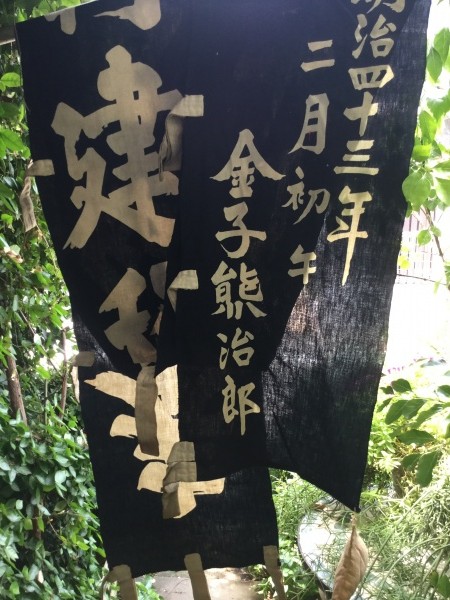 明治四十三年
二月初午
金子熊治郎
建